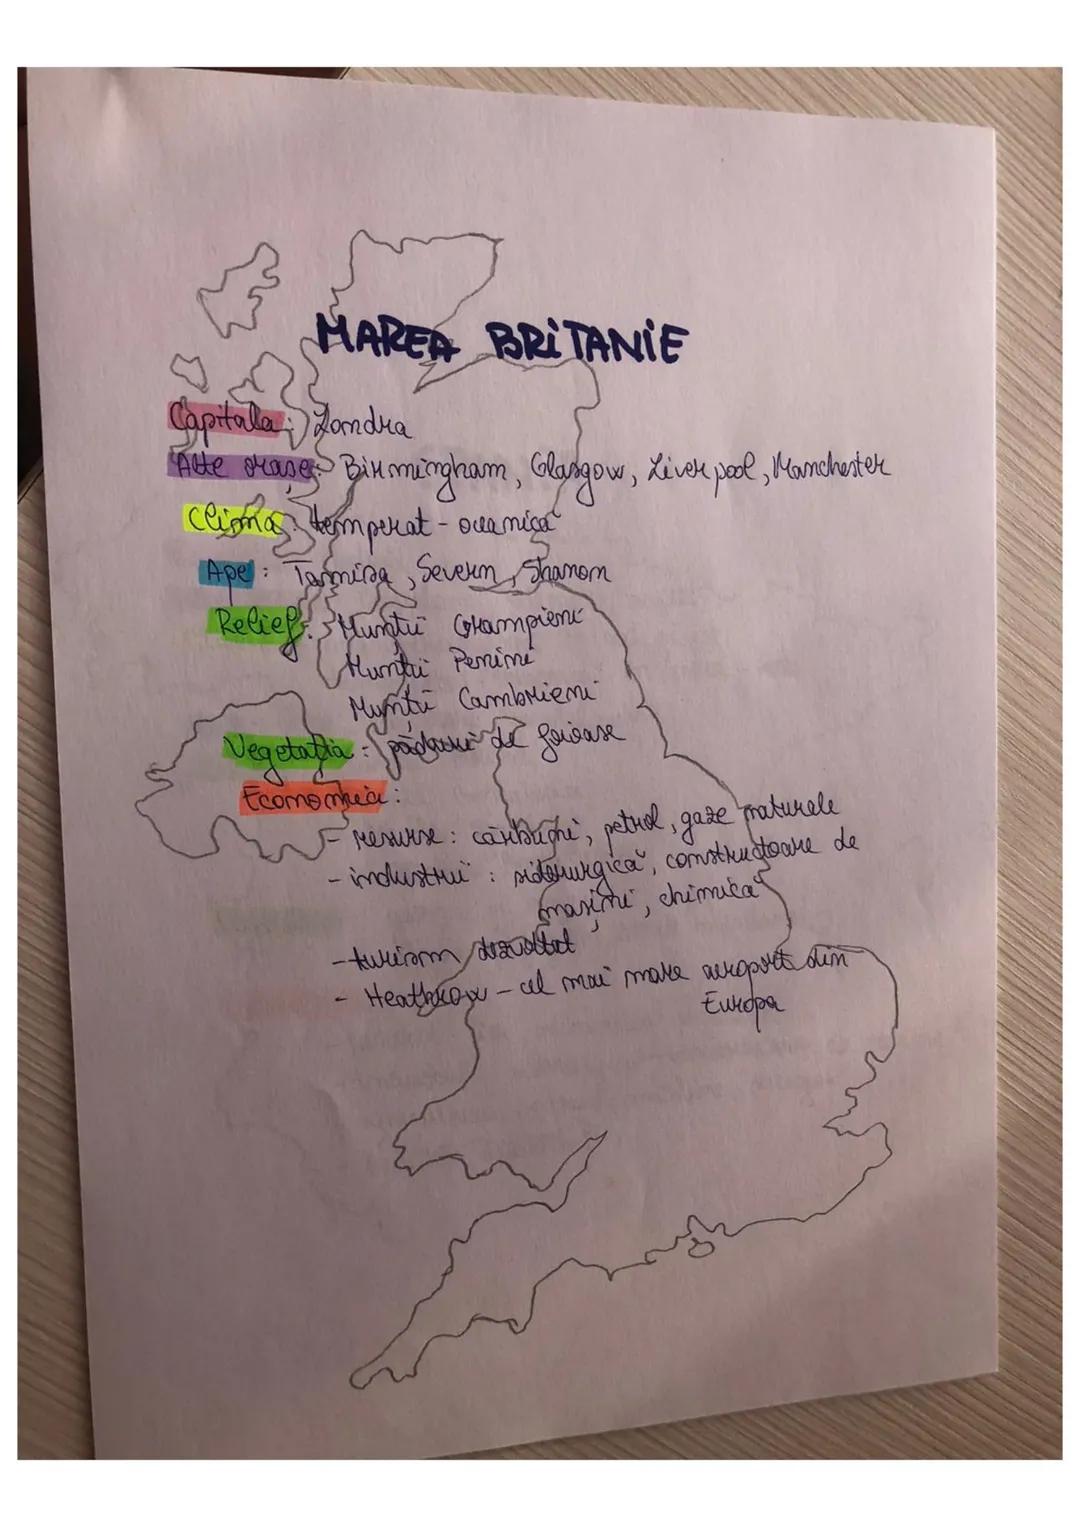 MAREA BRITANIE
Capitala: Londra
Alte orașe: Birmingham, Glasgow, Liverpool, Manchester
Clima: temperat - oceanică
Ape: Tamisa, Severn, Shanon
Relief: Munții Grampieni
Munții Penini
Munții Cambrieni
Vegetația: păduri de foioase
Economia:
- resurse: cărbuni, petrol, gaze naturale
- industrii: siderurgică, constructoare de
mașini, chimică
- turism dezvoltat
- Heathrow - cel mai mare aeroport din
Europa